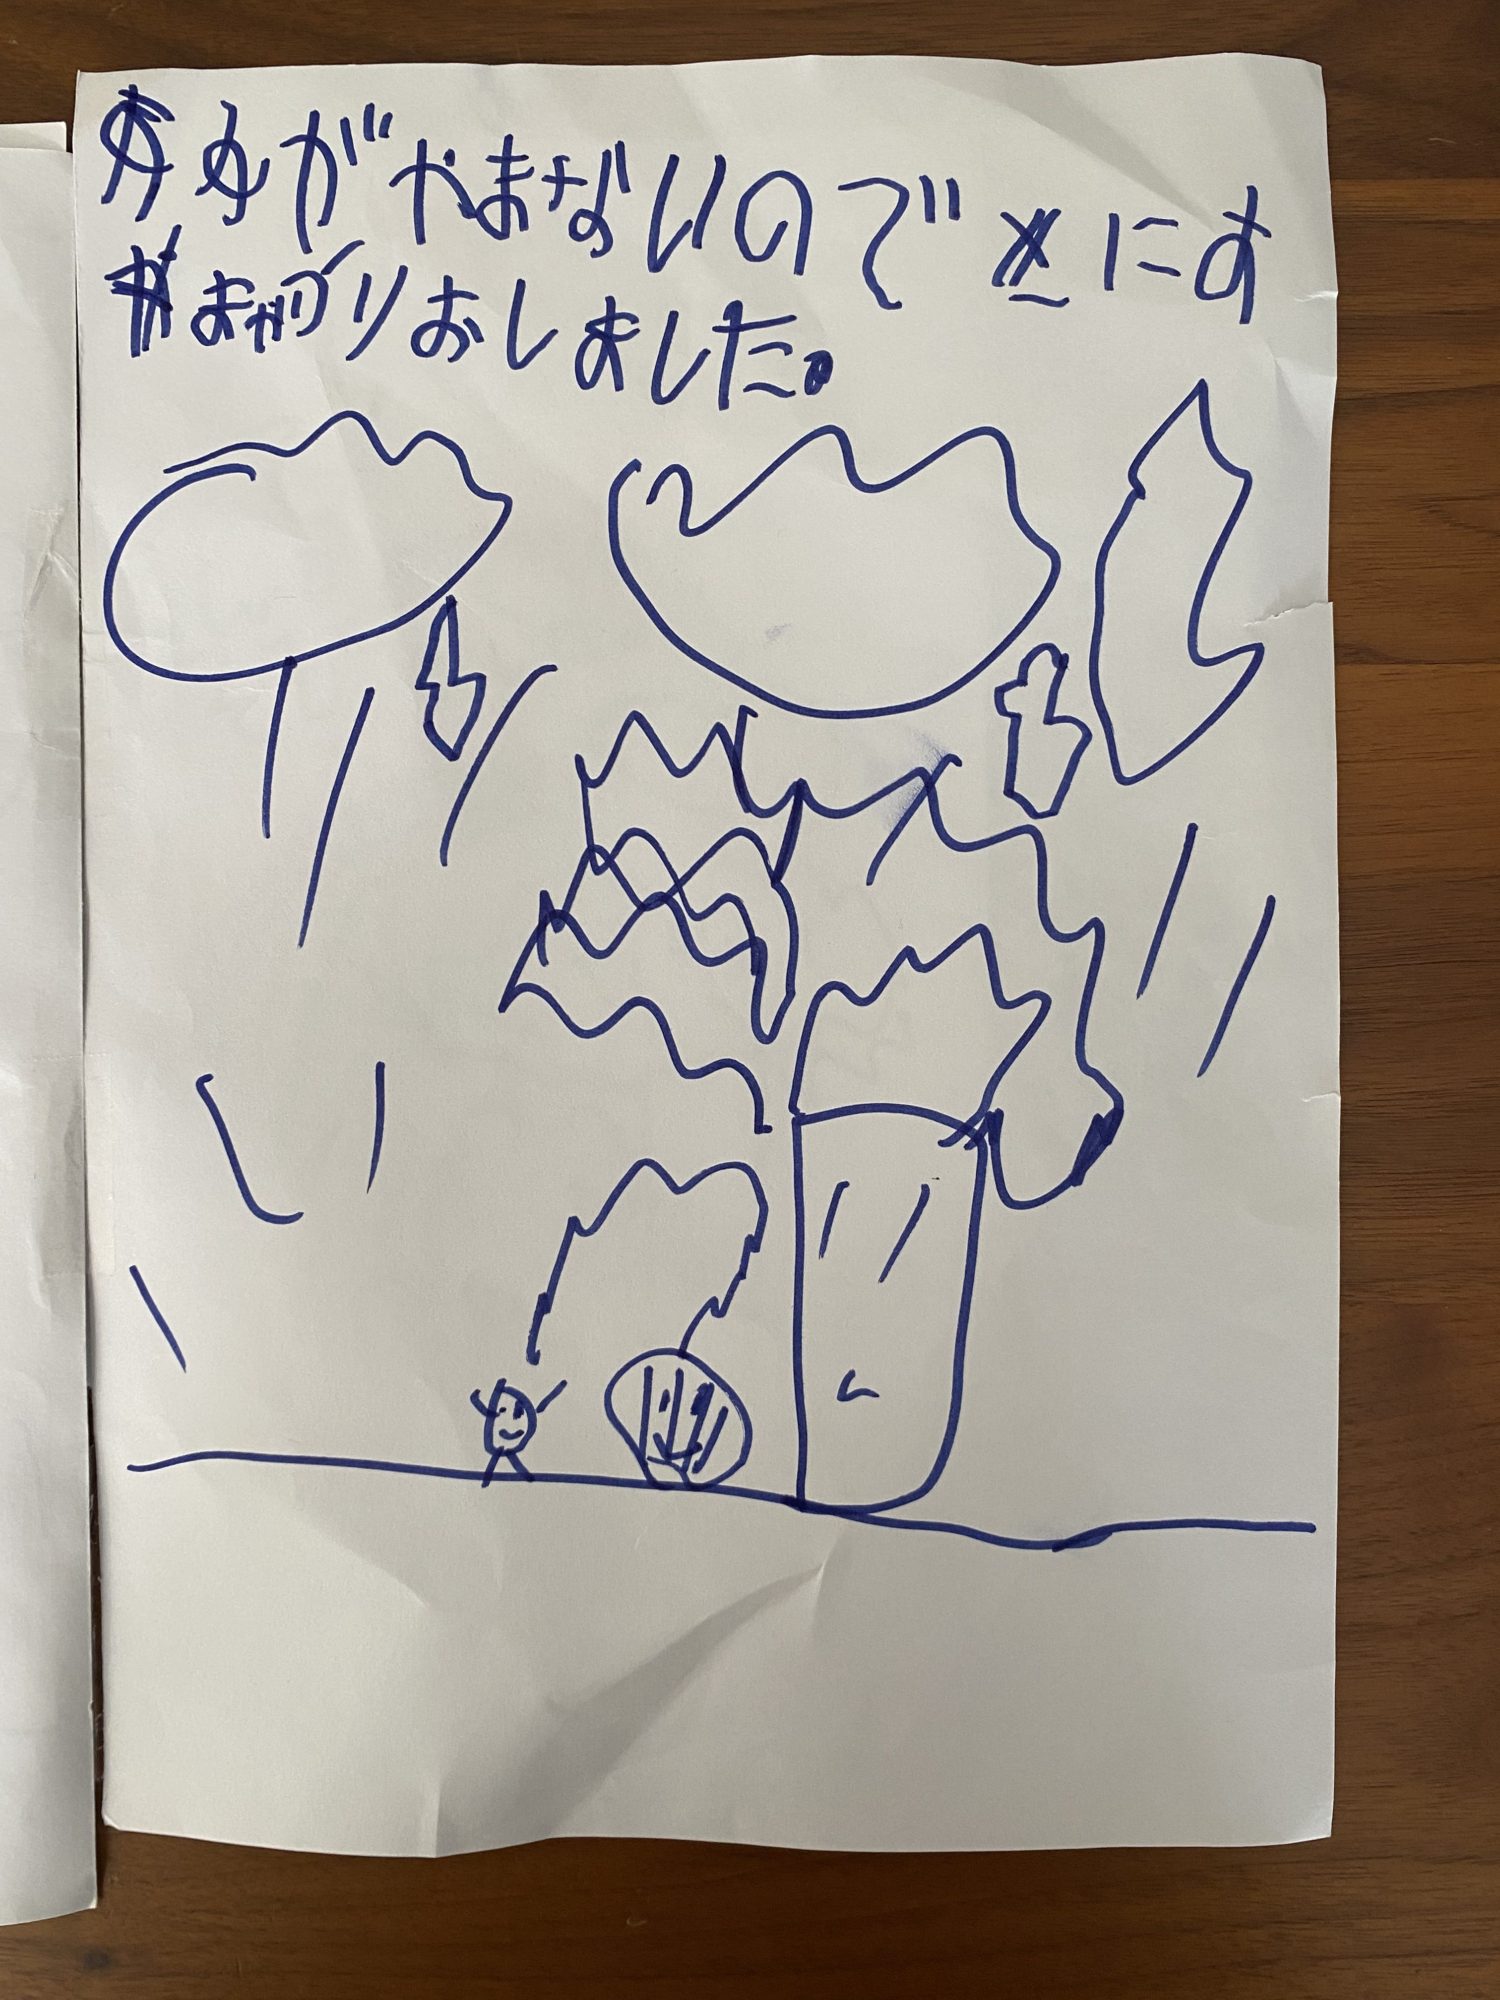 あめがやまないのできにす
まがづりおしました。